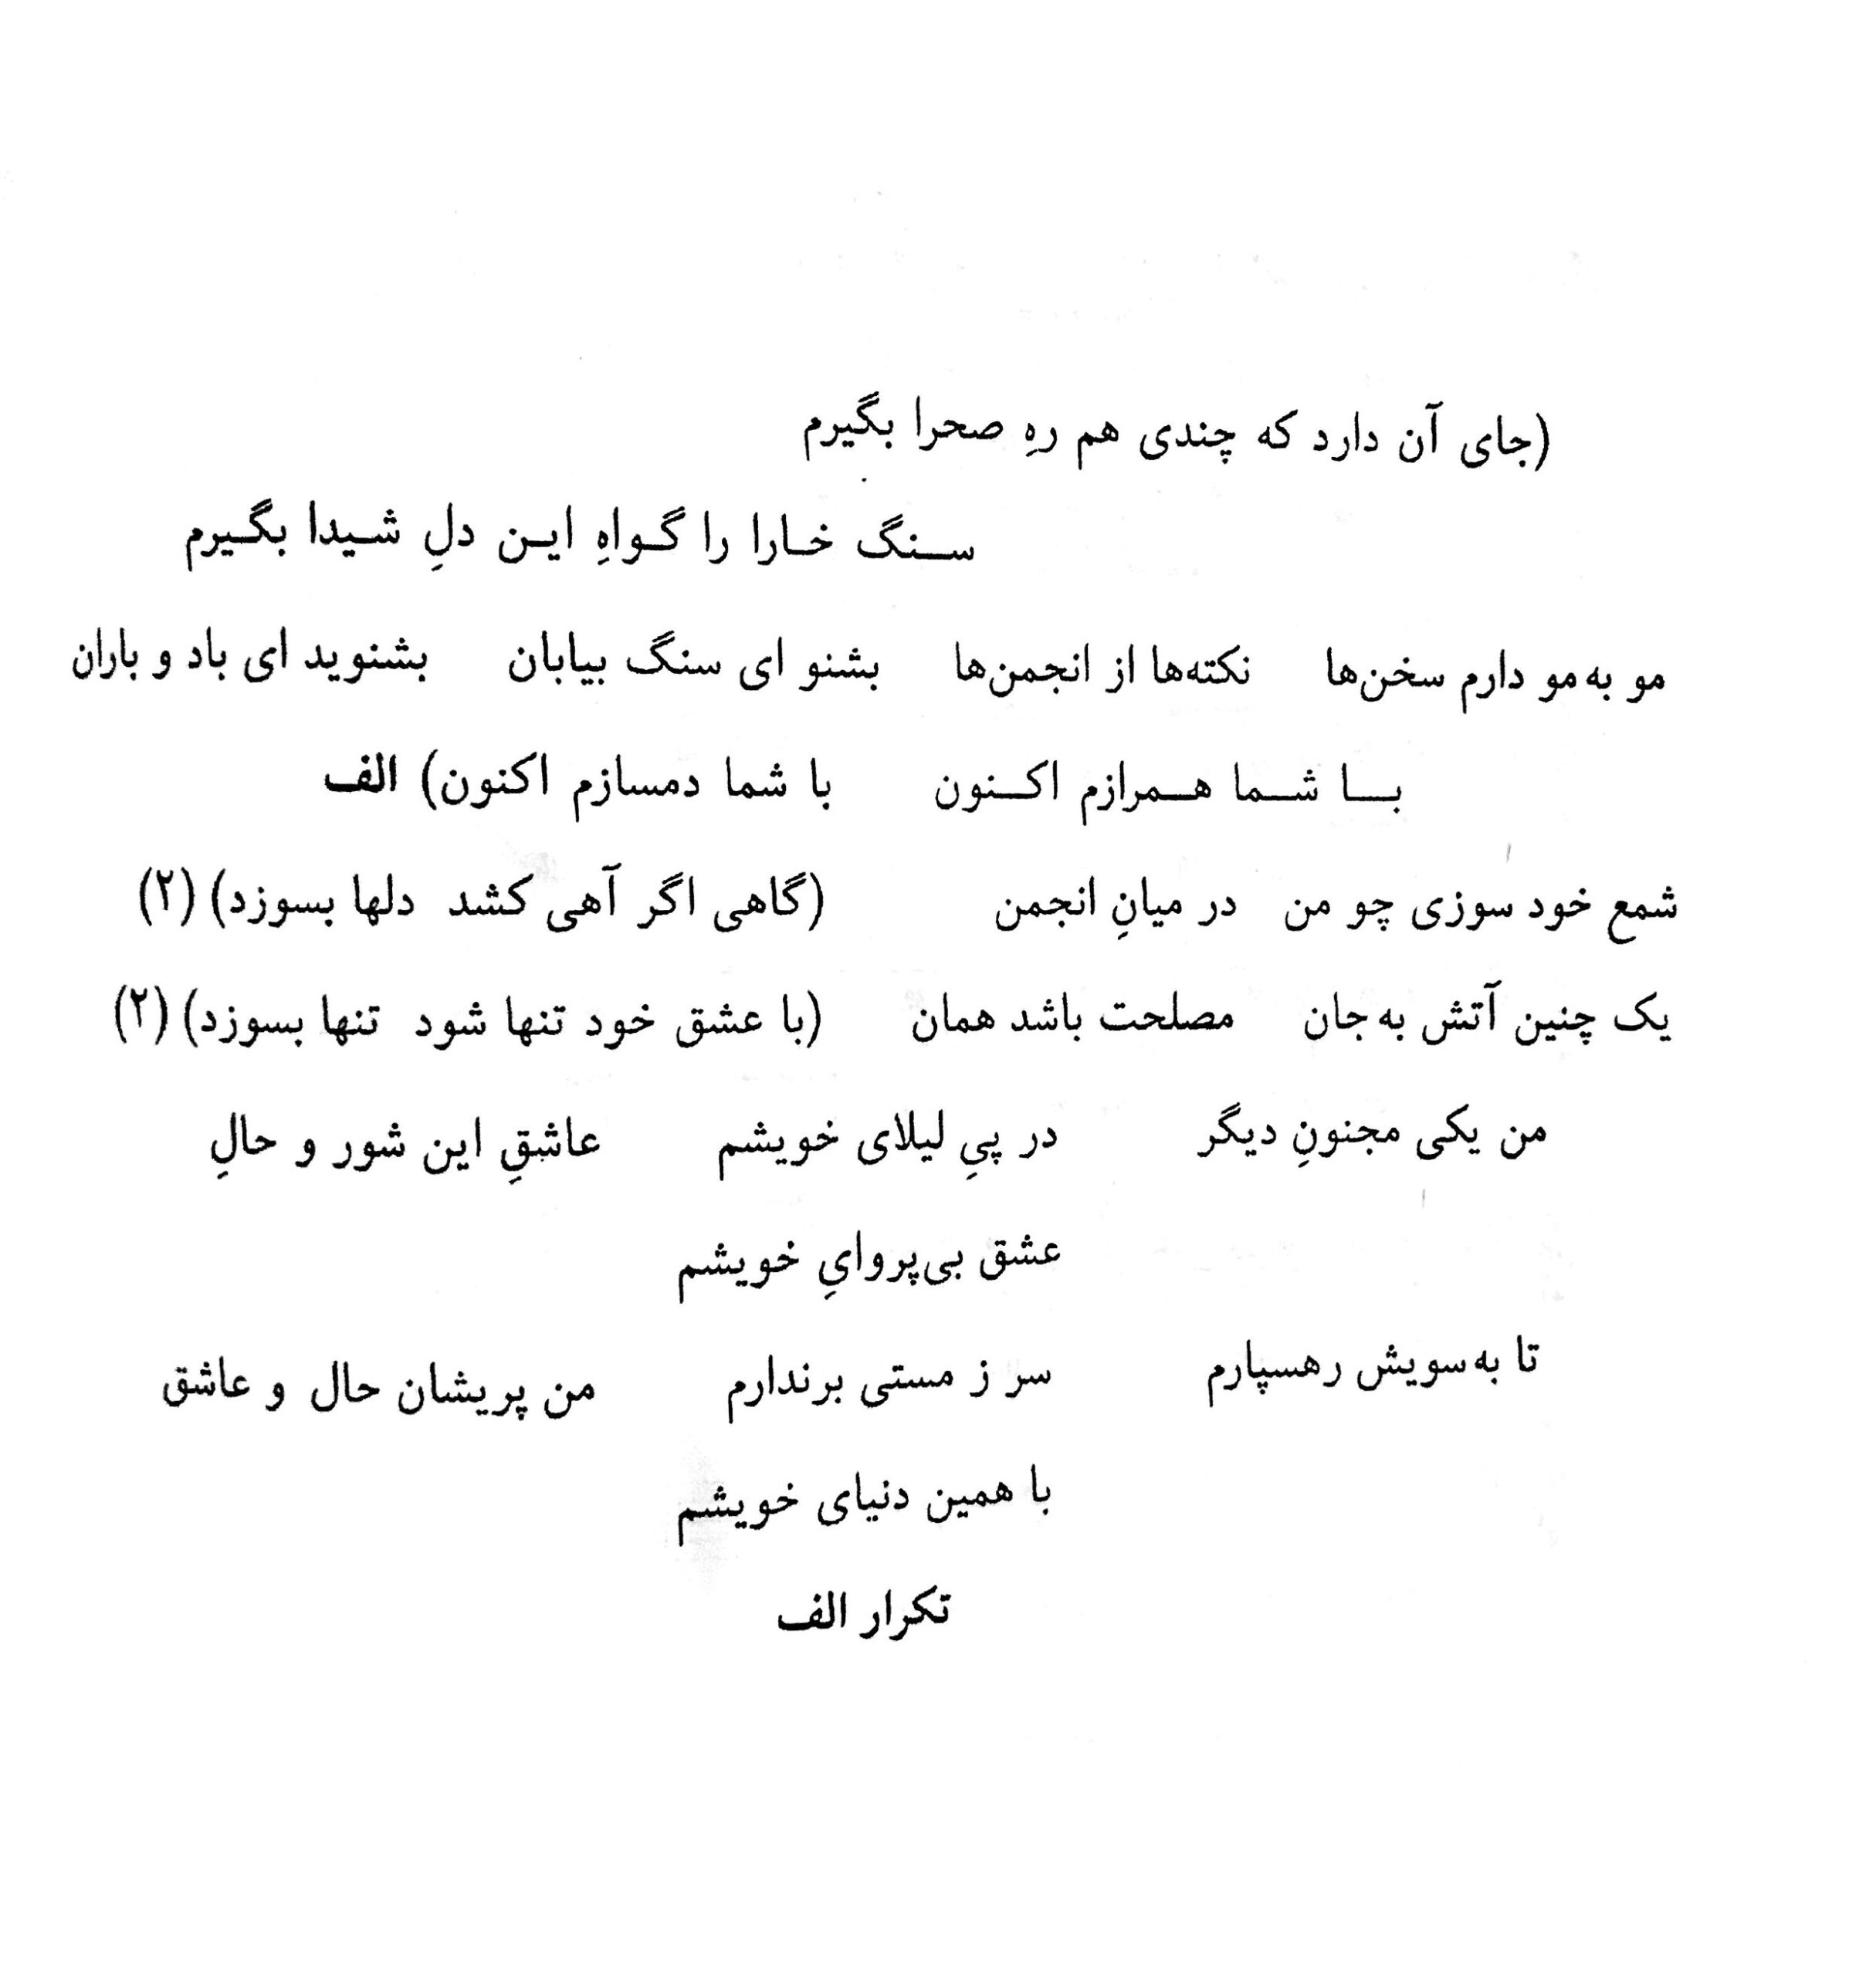 (جای آن دارد که چندی هم رهِ صحرا بگیرم
سنگ خارا را گواهِ این دلِ شیدا بگیرم
مو به مو دارم سخن‌ها نکته‌ها از انجمن‌ها بشنو ای سنگ بیابان بشنوید ای باد و باران
با شما همرازم اکنون با شما دمسازم اکنون) الف
شمع خود سوزی چو من در میانِ انجمن (گاهی اگر آهی کشد دلها بسوزد) (۲)
یک چنین آتش به جان مصلحت باشد همان (با عشق خود تنها شود تنها بسوزد) (۲)
من یکی مجنونِ دیگر در پیِ لیلای خویشم عاشقِ این شور و حالِ
عشق بی‌پروایِ خویشم
تا به‌سویش رهسپارم سر ز مستی برندارم من پریشان حال و عاشق
با همین دنیای خویشم
تکرار الف